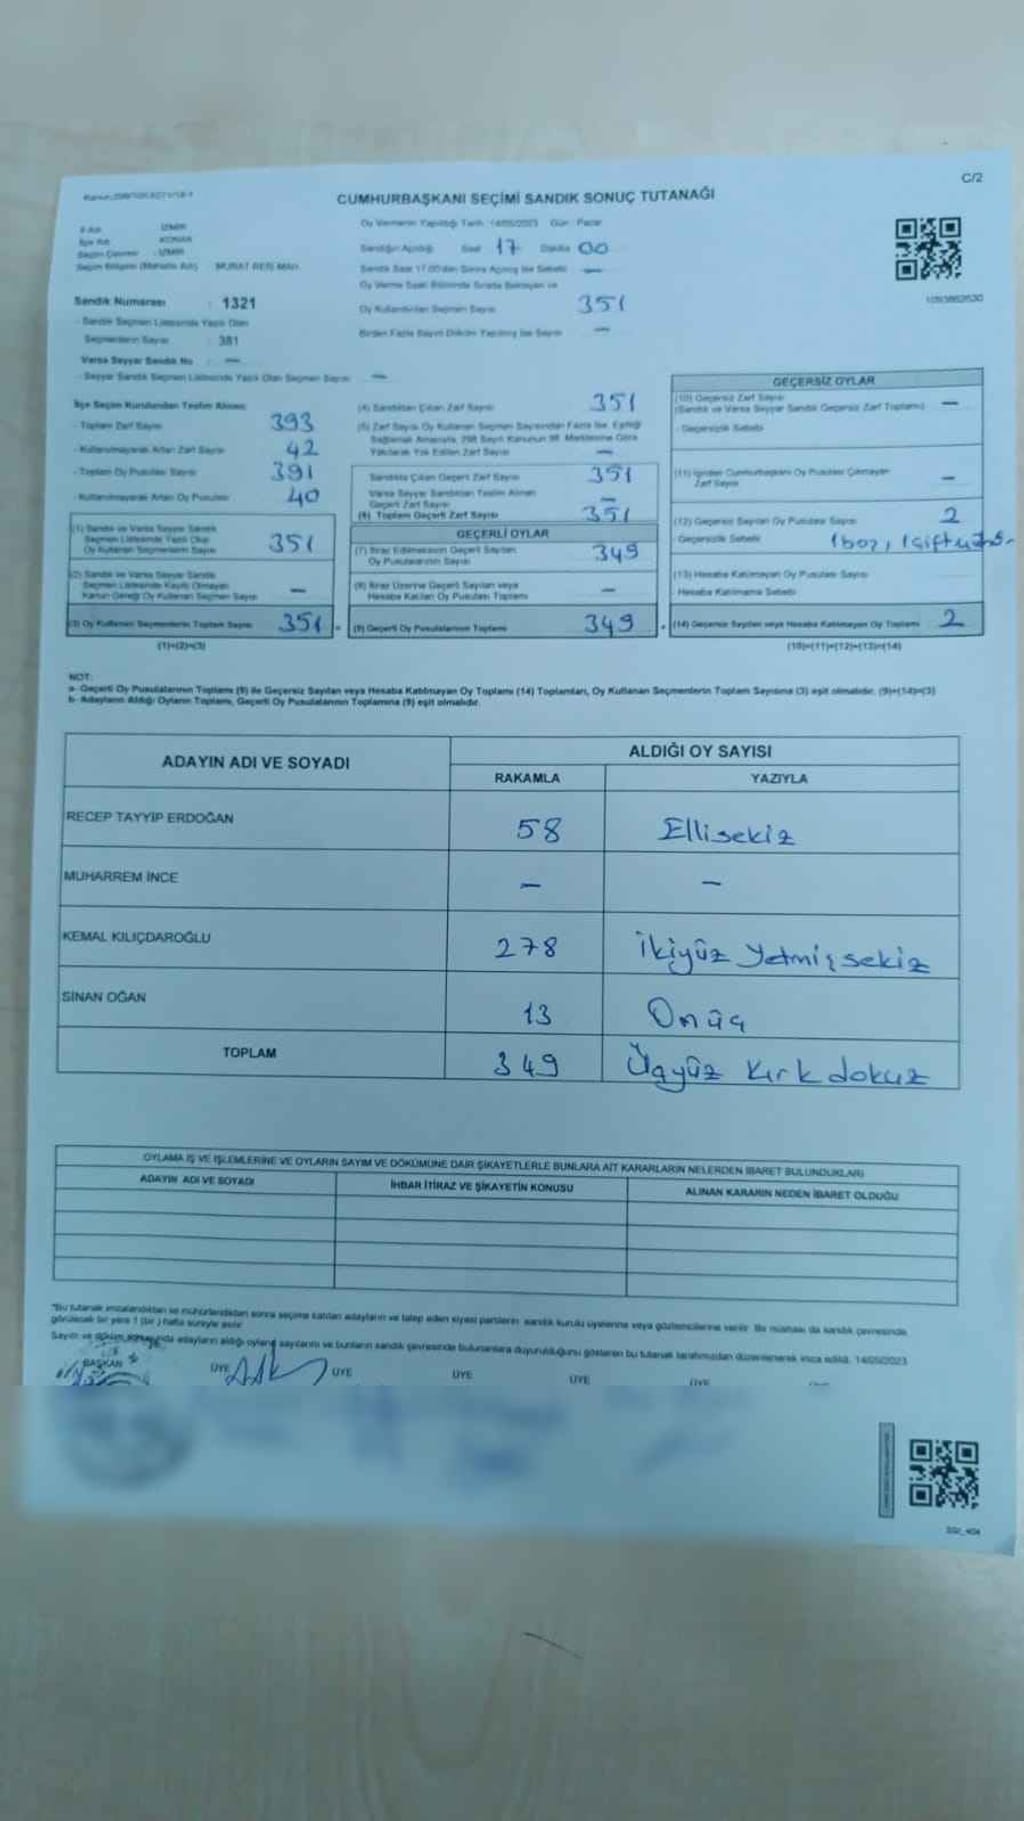 C/2
CUMHURBAŞKANI SEÇİMİ SANDIK SONUÇ TUTANAĞI
Oy Vermenin Yapıldığı Tarih : 14/05/2023 Gün : Pazar
İl Adı : İZMİR
İlçe Adı : KONAK
Seçim Çevresi : İZMİR
Seçim Bölgesi (Mahalle Adı) : MURAT REİS MAH.
Sandığın Açıldığı Saat 17 Dakika 00
Sandık Saat 17.00'dan Sonra Açılmış İse Sebebi —
Oy Verme Saati Bitiminde Sırada Bekleyen ve
Oy Kullandırılan Seçmen Sayısı 351
Birden Fazla Sayım Döküm Yapılmış İse Sayısı —
Sandık Numarası : 1321
- Sandık Seçmen Listesinde Yazılı Olan
Seçmenlerin Sayısı : 381
Varsa Seyyar Sandık No : —
- Seyyar Sandık Seçmen Listesinde Yazılı Olan Seçmen Sayısı —
İlçe Seçim Kurulundan Teslim Alınan;
- Toplam Zarf Sayısı 393
- Kullanılmayarak Artan Zarf Sayısı 42
- Toplam Oy Pusulası Sayısı 391
- Kullanılmayarak Artan Oy Pusulası 40
(1) Sandık ve Varsa Seyyar Sandık
Seçmen Listesinde Yazılı Olup
Oy Kullanan Seçmenlerin Sayısı 351
(2) Sandık ve Varsa Seyyar Sandık
Seçmen Listesinde Kayıtlı Olmayan
Kanun Gereği Oy Kullanan Seçmen Sayısı —
(3) Oy Kullanan Seçmenlerin Toplam Sayısı 351
(1)+(2)=(3)
(4) Sandıktan Çıkan Zarf Sayısı 351
(5) Zarf Sayısı Oy Kullanan Seçmen Sayısından Fazla İse, Eşitliği
Sağlamak Amacıyla, 298 Sayılı Kanunun 98. Maddesine Göre
Yakılarak Yok Edilen Zarf Sayısı —
Sandıkta Çıkan Geçerli Zarf Sayısı 351
Varsa Seyyar Sandıktan Teslim Alınan
Geçerli Zarf Sayısı —
(6) Toplam Geçerli Zarf Sayısı 351
GEÇERLİ OYLAR
(7) İtiraz Edilmeksizin Geçerli Sayılan
Oy Pusulalarının Sayısı 349
(8) İtiraz Üzerine Geçerli Sayılan veya
Hesaba Katılan Oy Pusulası Toplamı —
(9) Geçerli Oy Pusulalarının Toplamı 349
GEÇERSİZ OYLAR
(10) Geçersiz Zarf Sayısı
(Sandık ve Varsa Seyyar Sandık Geçersiz Zarf Toplamı) —
- Geçersizlik Sebebi
(11) İçinden Cumhurbaşkanı Oy Pusulası Çıkmayan
Zarf Sayısı —
(12) Geçersiz Sayılan Oy Pusulası Sayısı 2
- Geçersizlik Sebebi
(13) Hesaba Katılmayan Oy Pusulası Sayısı
- Hesaba Katılmama Sebebi
(14) Geçersiz Sayılan veya Hesaba Katılmayan Oy Toplamı 2
(10)+(11)+(12)+(13)=(14)
NOT:
a- Geçerli Oy Pusulalarının Toplamı (9) ile Geçersiz Sayılan veya Hesaba Katılmayan Oy Toplamı (14) Toplamları, Oy Kullanan Seçmenlerin Toplam Sayısına (3) eşit olmalıdır. (9)+(14)=(3)
b- Adayların Aldığı Oyların Toplamı, Geçerli Oy Pusulalarının Toplamına (9) eşit olmalıdır.
ADAYIN ADI VE SOYADI
ALDIĞI OY SAYISI
RAKAMLA YAZIYLA
RECEP TAYYİP ERDOĞAN 58 Ellisekiz
MUHARREM İNCE — —
KEMAL KILIÇDAROĞLU 278 İkiyüz Yetmişsekiz
SİNAN OĞAN 13 Onüç
TOPLAM 349 Üçyüz Kırk dokuz
OYLAMA İŞ VE İŞLEMLERİNE VE OYLARIN SAYIM VE DÖKÜMÜNE DAİR ŞİKAYETLERLE BUNLARA AİT KARARLARIN NELERDEN İBARET BULUNDUKLARI
ADAYIN ADI VE SOYADI
İHBAR İTİRAZ VE ŞİKAYETİN KONUSU
ALINAN KARARIN NEDEN İBARET OLDUĞU
*Bu tutanak imzalandıktan ve mühürlendikten sonra seçime katılan adayların ve talep eden siyasi partilerin sandık kurulu üyelerine veya gözlemcilerine verilir. Bir nüshası da sandık çevresinde
görülecek bir yere 1 (bir) hafta süreyle asılır.
Sayım ve döküm sonucunda adayların aldığı oyların sayılarını ve bunların sandık çevresinde bulunanlara duyurulduğunu gösteren bu tutanak tarafımızdan düzenlenerek imza edildi. 14/05/2023
BAŞKAN ÜYE ÜYE ÜYE ÜYE ÜYE